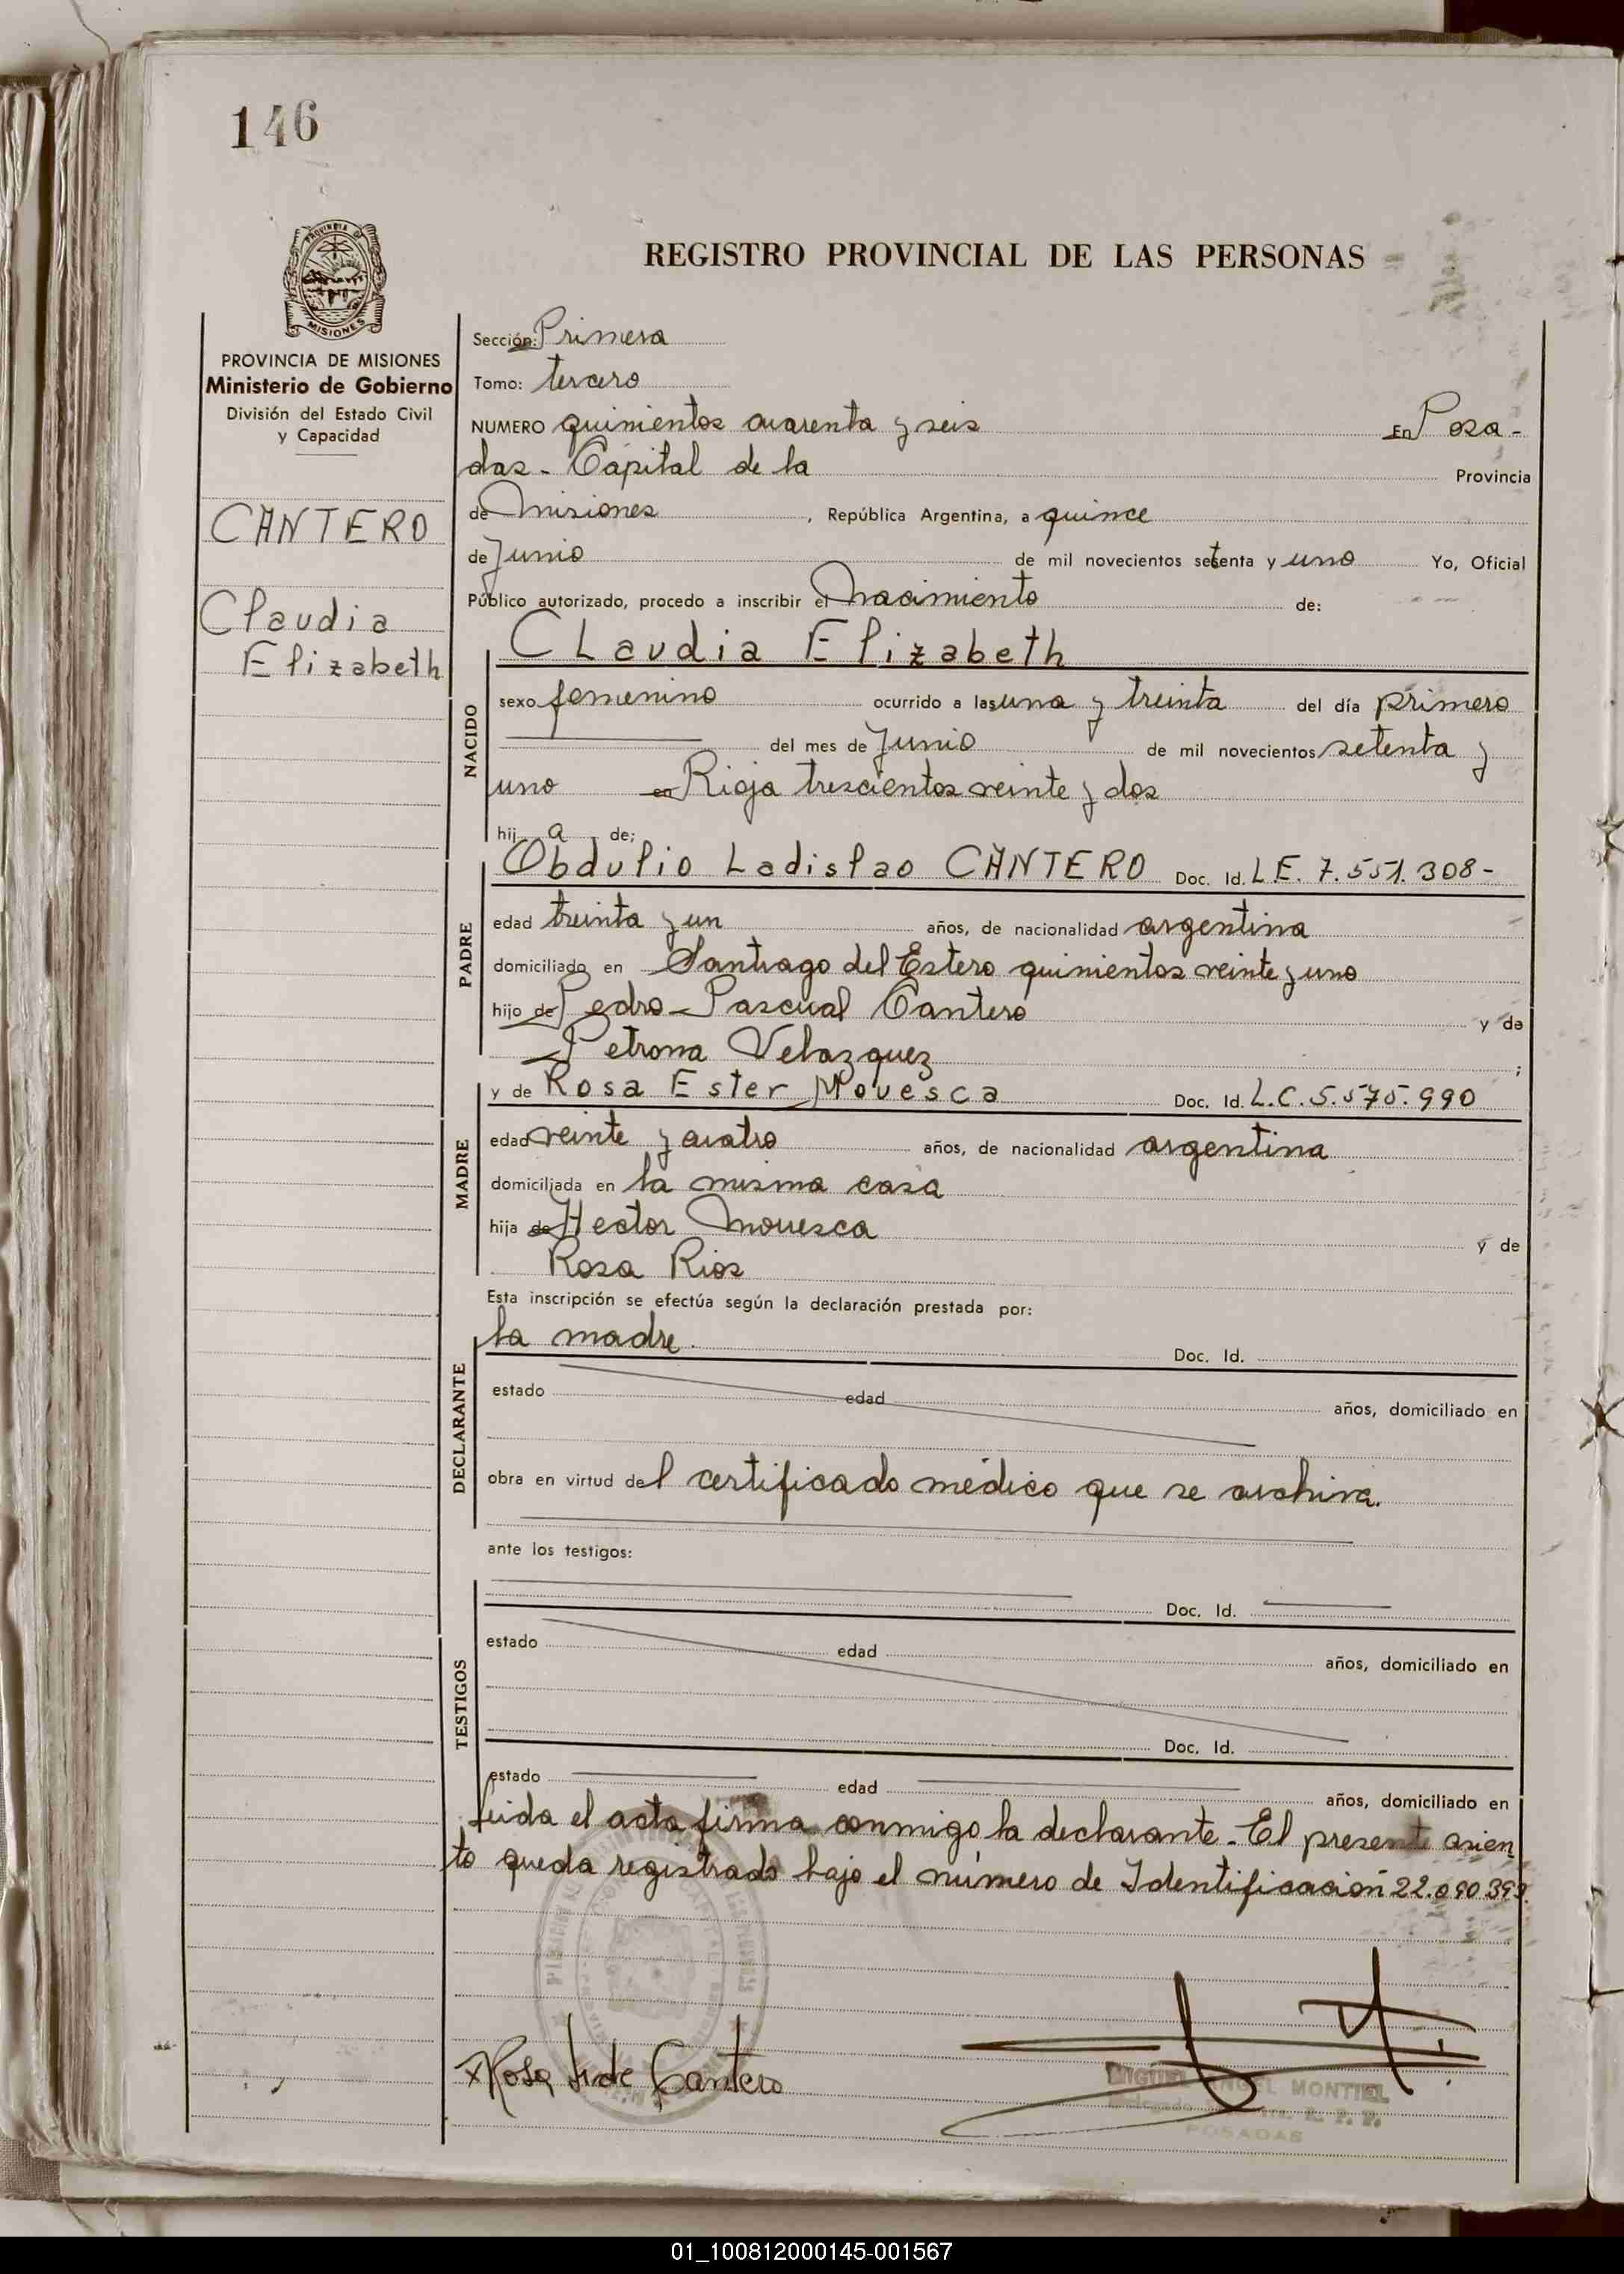 146
PROVINCIA D
MISIONES
REGISTRO PROVINCIAL DE LAS PERSONAS
PROVINCIA DE MISIONES
Ministerio de Gobierno
División del Estado Civil
y Capacidad
CANTERO
Claudia
Elizabeth
Sección: Primera
Tomo: tercero
NUMERO quinientos cuarenta y seis En Posa-
das - Capital de la Provincia
de Misiones, República Argentina, a quince
de Junio de mil novecientos setenta y uno Yo, Oficial
Público autorizado, procedo a inscribir el Nacimiento de:
NACIDO
CLaudia Elizabeth
sexo femenino ocurrido a las una y treinta del día primero
del mes de Junio de mil novecientos setenta y
uno en Rioja trescientos veinte y dos
hij a de;
PADRE
Obdulio Ladislao CANTERO Doc. Id. L E. 7.551.308-
edad treinta y un años, de nacionalidad argentina
domiciliado en Santiago del Estero quinientos veinte y uno
hijo de Pedro Pascual Cantero y de
Petrona Velazquez ;
MADRE
y de Rosa Ester Movesca Doc. Id. L.C.5.575.990
edad veinte y cuatro años, de nacionalidad argentina
domiciliada en la misma casa
hija de Hector Mouesca y de
Rosa Rios
Esta inscripción se efectúa según la declaración prestada por:
DECLARANTE
la madre. Doc. Id.
estado edad años, domiciliado en
obra en virtud del certificado médico que se archiva.
ante los testigos:
TESTIGOS
Doc. Id.
estado edad años, domiciliado en
Doc. Id.
estado edad años, domiciliado en
Leida el acta firma conmigo la declarante. El presente asien
to queda registrado bajo el número de Identificación 22.090 393.
Rosa de Cantero
MIGUEL ANGEL MONTIEL
R. P. P.
POSADAS
01_100812000145-001567